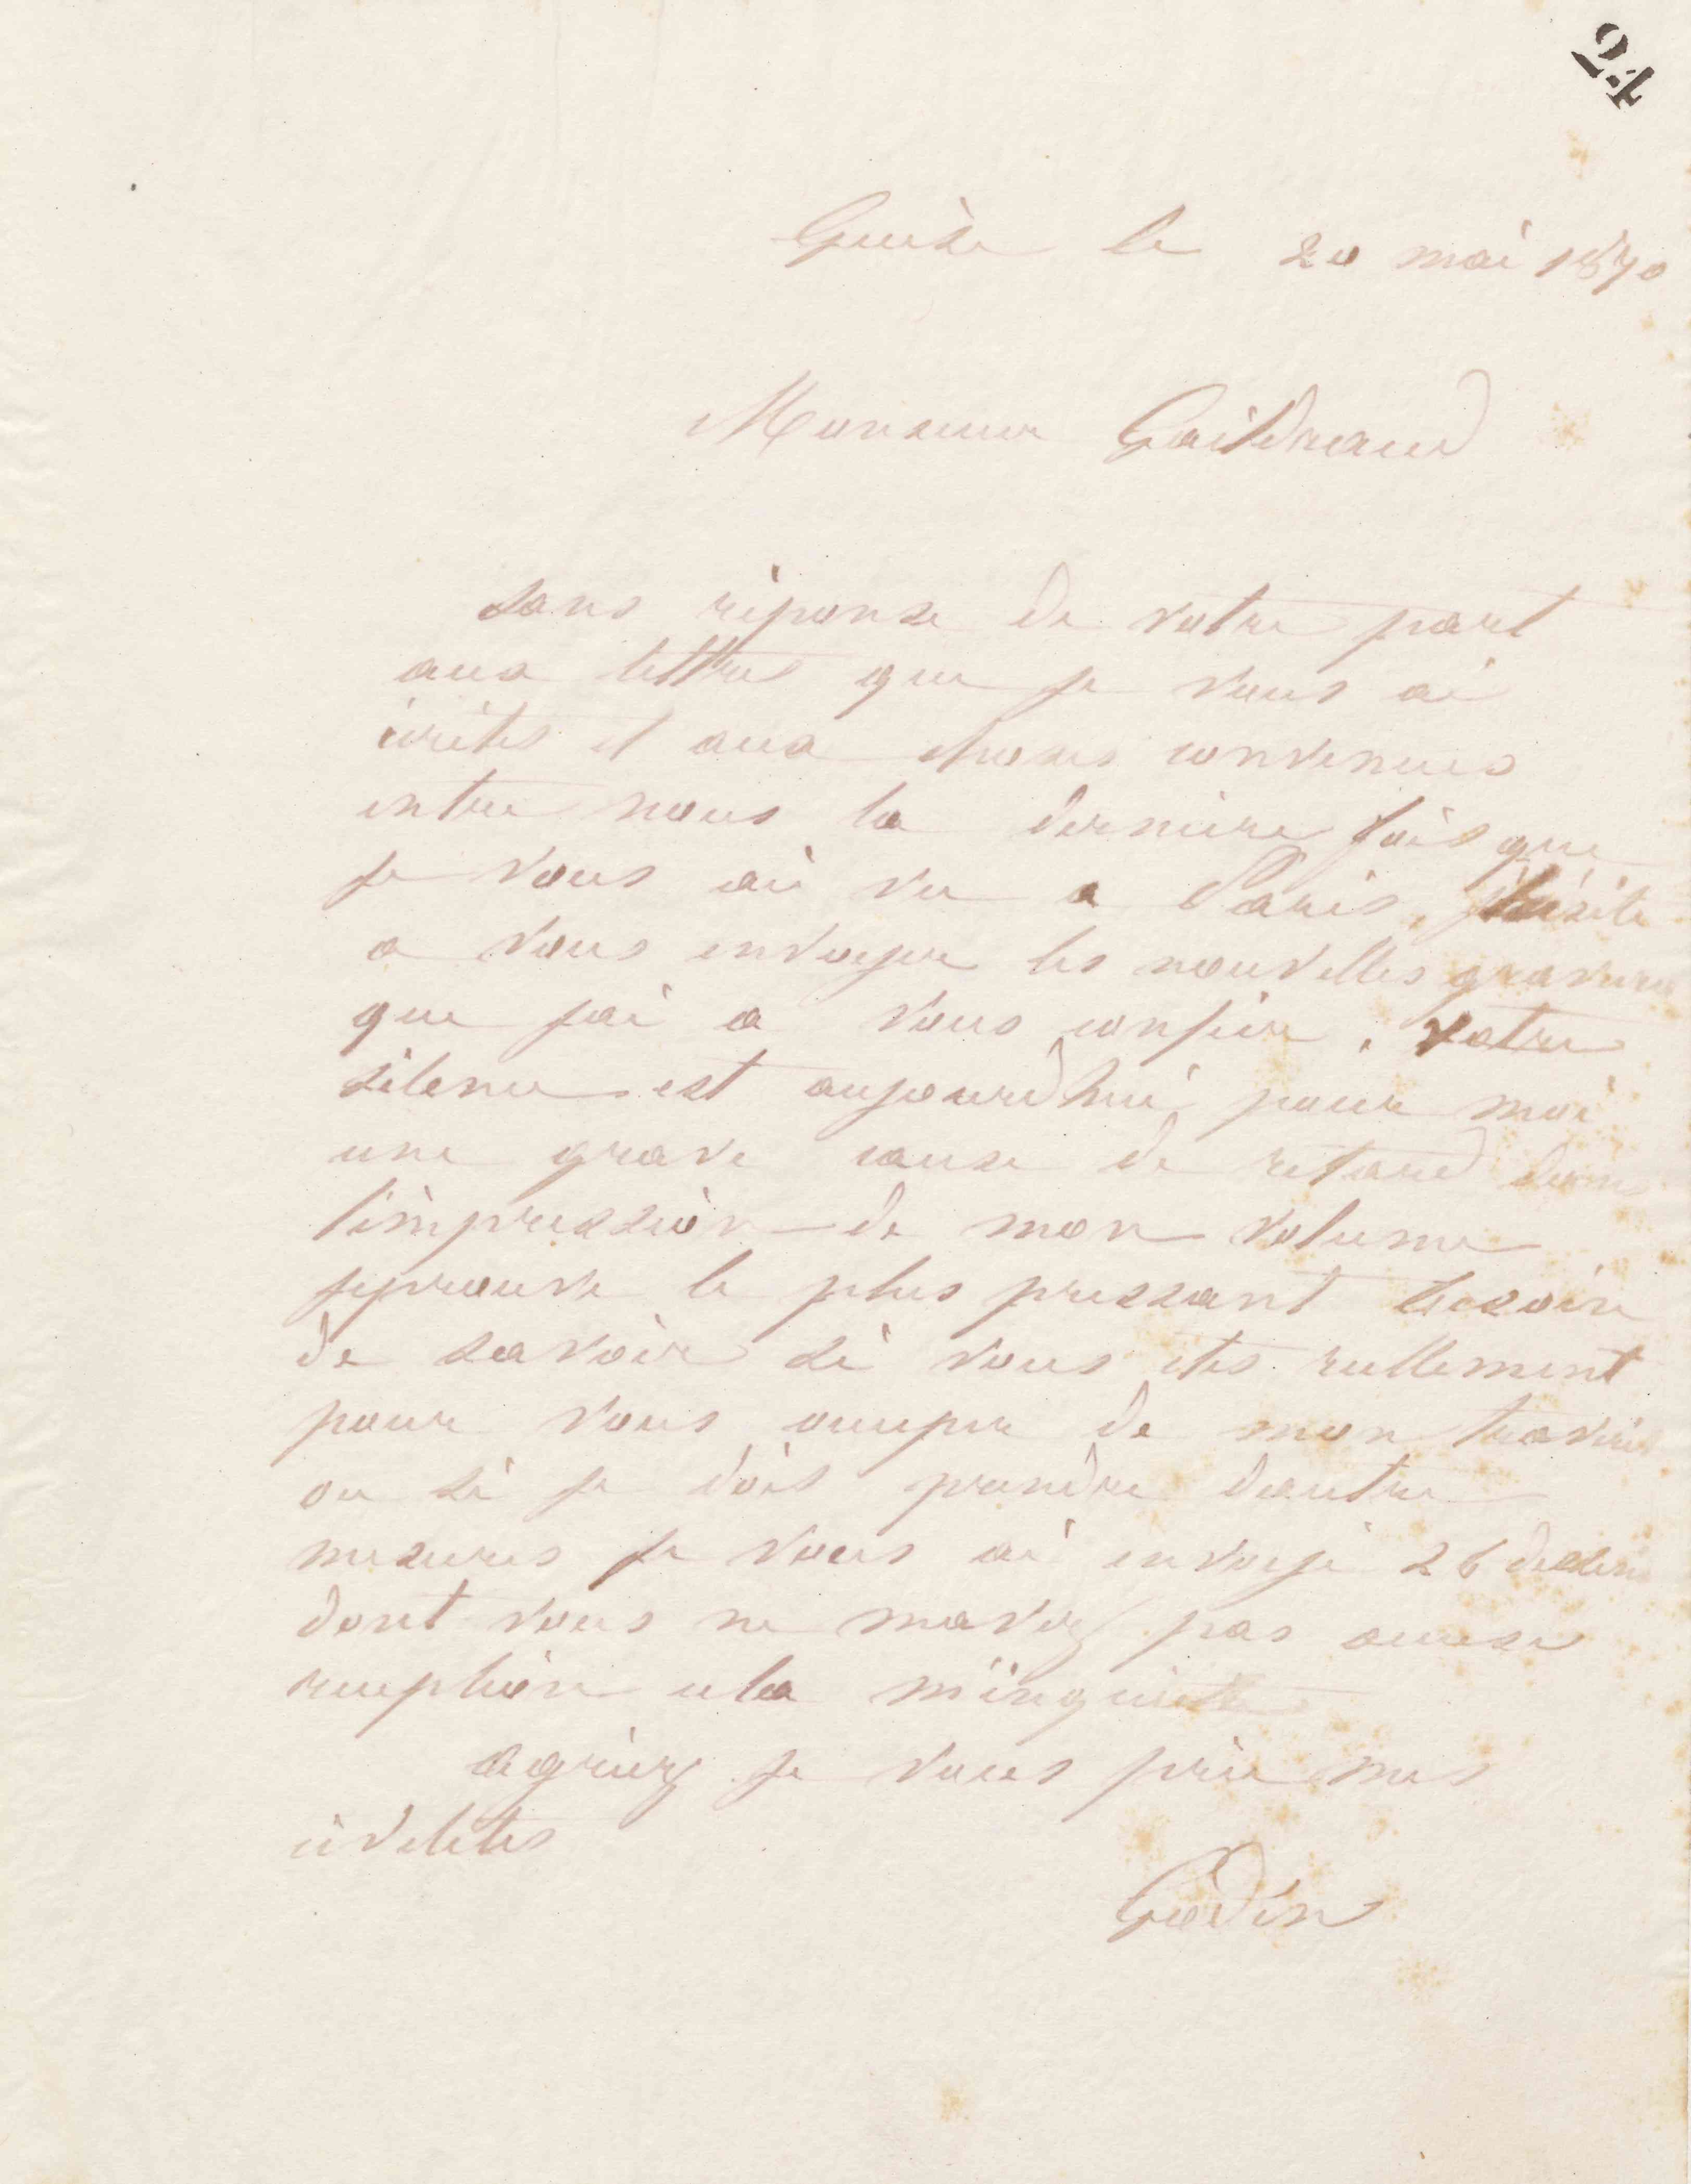 24
Guise le 20 mai 1870
Monsieur Gaildraud
sans réponse de votre part
aux lettres que je vous ai
écrites et aux choses convenues
entre nous la dernière fois que
je vous ai vu a Paris, j'hésite
a vous envoyer les nouvelles gravures
que jai a vous confier, votre
silence est aujourdhui pour moi
une grave cause de retard dans
l'impression de mon volume
jeprouve le plus pressant besoin
de savoir si vous etes reellement
pour vous occuper de mon travail
ou si je dois prendre dautres
mesures je vous ai envoyé 26 dessins
dont vous ne mavez pas accusé
reception cela m'inquiète
agréez je vous prie mes
civilités
Godin